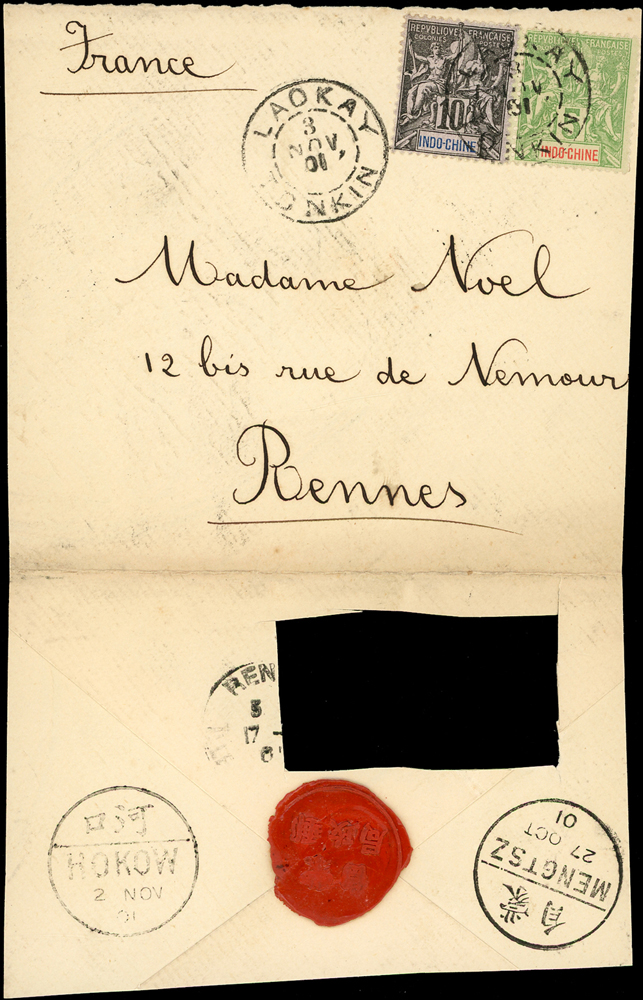 France
REPUBLIQUE FRANÇAISE
COLONIES POSTES
10
INDO-CHINE
REPUBLIQUE FRANÇAISE
INDO-CHINE
LAOKAY
3
NOV,
01
TONKIN
Madame Noël
12 bis rue de Nemour
Rennes
REN
5
17 -
河口
HOKOW
2 NOV
01
01
27 OCT
MENGTSZ
蒙自